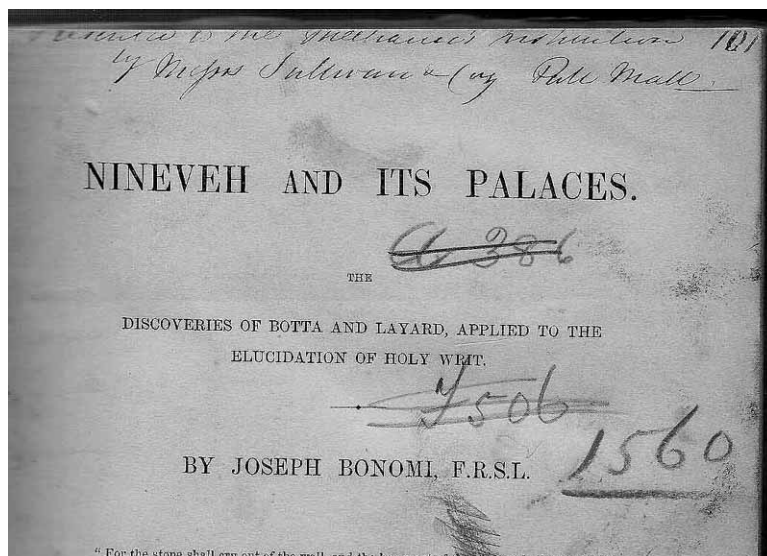 Presented to the Mechanics Institution 101
by Messrs Sullivan & Coy Pall Mall.
NINEVEH AND ITS PALACES.
386
THE
DISCOVERIES OF BOTTA AND LAYARD, APPLIED TO THE
ELUCIDATION OF HOLY WRIT.
F506
BY JOSEPH BONOMI, F.R.S.L.
1560
"For the stone shall cry out of the wall, and the